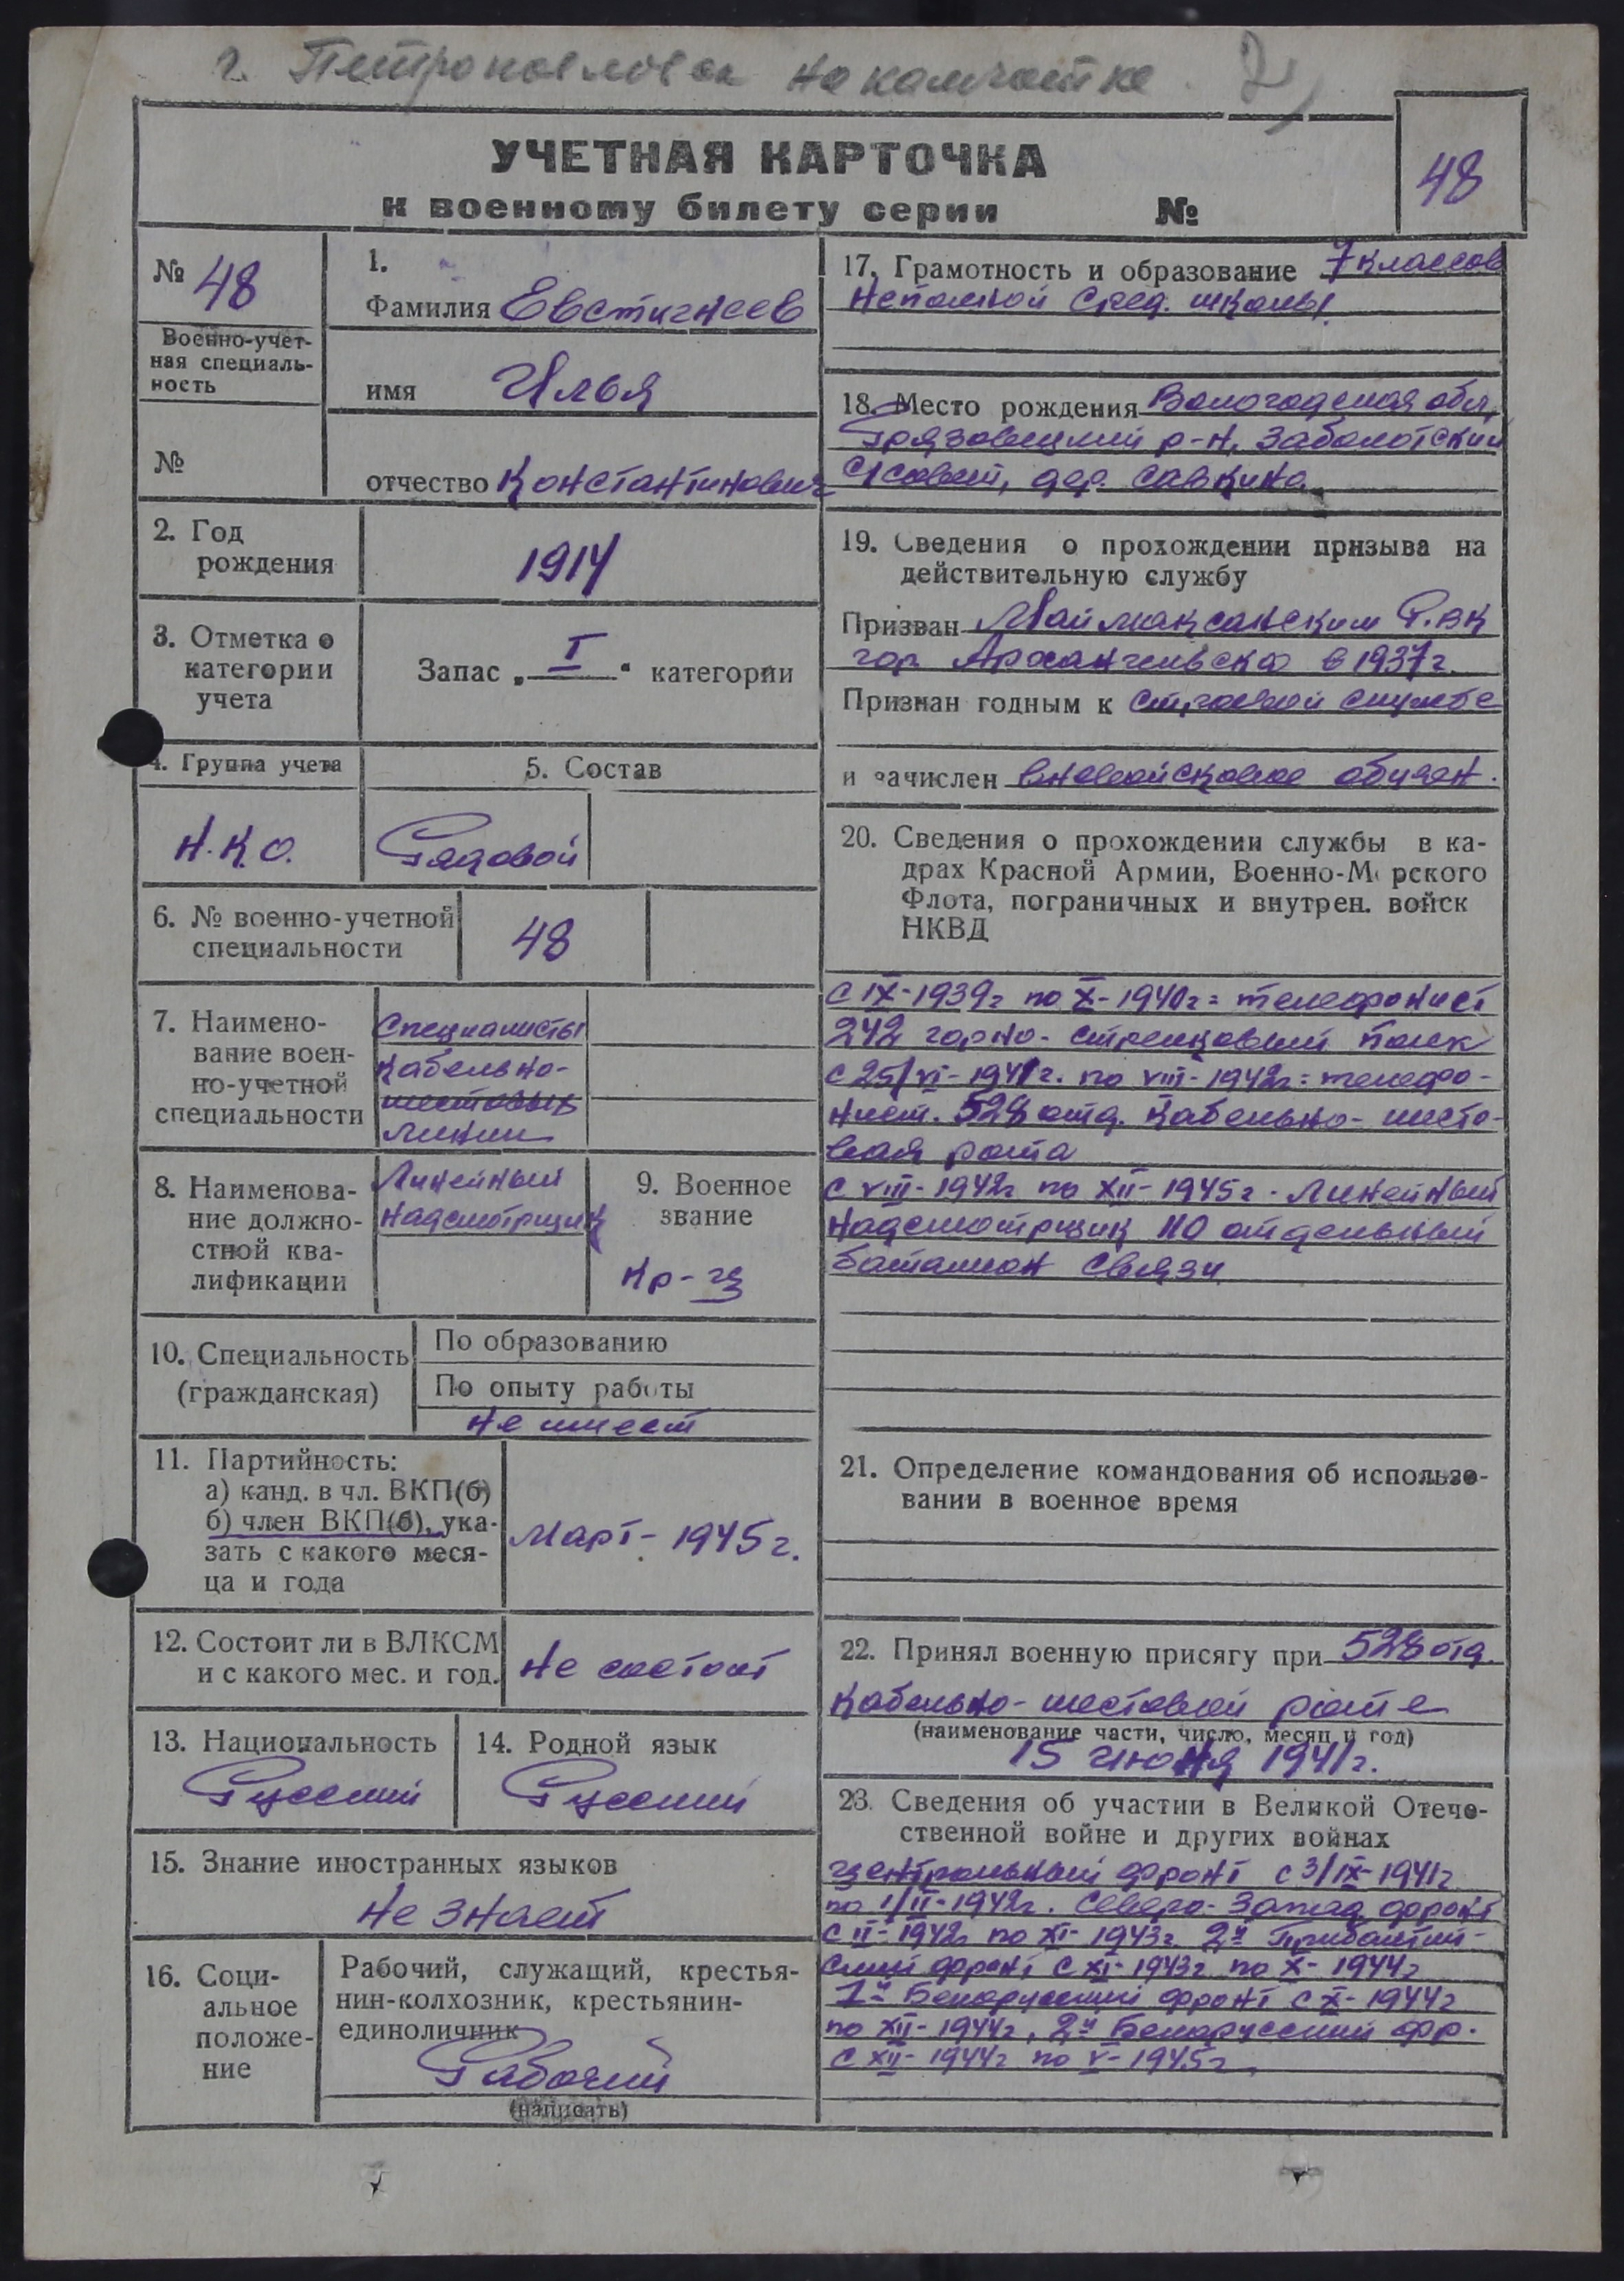 г. Петропавловск на камчатке 2)
УЧЕТНАЯ КАРТОЧКА
к военному билету серии №
48
№ 48
Военно-учет-
ная специаль-
ность
№
1.
Фамилия Евстигнеев
имя Илья
отчество Константинович
2. Год
рождения
1914
3. Отметка о
категории
учета
Запас „I“ категории
4. Группа учета
Н.К.О.
5. Состав
Рядовой
6. № военно-учетной
специальности
48
7. Наимено-
вание воен-
но-учетной
специальности
Специалисты
кабельно-
шестовых
линии
8. Наименова-
ние должно-
стной ква-
лификации
Линейный
надсмотрщик
9. Военное
звание
Кр-ц
10. Специальность
(гражданская)
По образованию
По опыту работы
не имеет
11. Партийность:
а) канд. в чл. ВКП(б)
б) член ВКП(б), ука-
зать с какого меся-
ца и года
Март- 1945 г.
12. Состоит ли в ВЛКСМ
и с какого мес. и год.
Не состоит
13. Национальность
Русский
14. Родной язык
Русский
15. Знание иностранных языков
Не знает
16. Соци-
альное
положе-
ние
Рабочий, служащий, крестья-
нин-колхозник, крестьянин-
единоличник
Рабочий
(написать)
17. Грамотность и образование 7 классов
неполной сред. школы.
18. Место рождения Вологодская обл,
Грязовецкий р-н, Заболотский
с/совет, дер. Савкино.
19. Сведения о прохождении призыва на
действительную службу
Призван Маймаксанским Р.ВК
гор. Архангельска в 1937 г.
Признан годным к строевой службе
и зачислен вневойсковое обучен.
20. Сведения о прохождении службы в ка-
драх Красной Армии, Военно-Морского
Флота, пограничных и внутрен. войск
НКВД
с IX-1939г по X-1940г = телефонист
242 горно- стрелковый полк
с 25/VI-1941г. по VIII-1942г = телефо-
нист. 528 отд. кабельно- шесто-
вая рота
с VIII-1942г по XII-1945г. Линейный
надсмотрщик 110 отдельный
баталион связи
21. Определение командования об использо-
вании в военное время
22. Принял военную присягу при 528 отд.
кабельно- шестовой роте
(наименование части, число, месяц и год)
15 июня 1941г.
23. Сведения об участии в Великой Отече-
ственной войне и других войнах
Центральный фронт с 3/IX-1941г
по 1/II-1942г. Северо- Запад. фронт
с II-1942г по XI-1943г 2й Прибалтий-
ский фронт с XI-1943г по X-1944г
1й Белорусский фронт с X-1944г
по XII-1944г, 2й Белорусский фр.
с XII-1944г по V-1945г.